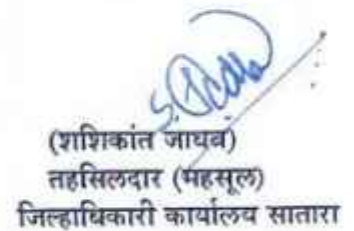 (शशिकांत जाधव)
तहसिलदार (महसूल)
जिल्हाधिकारी कार्यालय सातारा